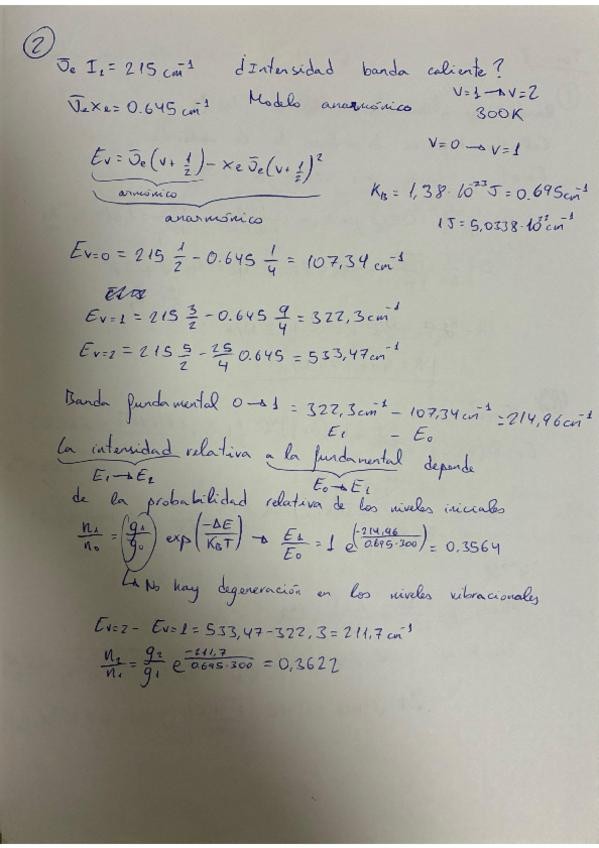 2
ν̄e I2 = 215 cm⁻¹ ¿Intensidad banda caliente?
ν̄e xe = 0.645 cm⁻¹ Modelo anarmónico v=1 → v=2
300K
v=0 → v=1
Ev = ν̄e (v + 1/2) - xe ν̄e (v + 1/2)²
armónico
anarmónico
KB = 1,38 · 10²³ J = 0.695 cm⁻¹
1J = 5,0338 · 10²² cm⁻¹
Ev=0 = 215 1/2 - 0.645 1/4 = 107,34 cm⁻¹
Ev=1 = 215 3/2 - 0.645 9/4 = 322,3 cm⁻¹
Ev=2 = 215 5/2 - 25/4 0.645 = 533,47 cm⁻¹
Banda fundamental 0 → 1 = 322,3 cm⁻¹ - 107,34 cm⁻¹ = 214,96 cm⁻¹
E1 - E0
La intensidad relativa a la fundamental depende
E1 → E2 E0 → E1
de la probabilidad relativa de los niveles iniciales
n1/n0 = (g1/g0) exp(-ΔE/KBT) → E1/E0 = 1 e^(-214,96/0.695·300) = 0.3564
↳ No hay degeneración en los niveles vibracionales
Ev=2 - Ev=1 = 533,47 - 322,3 = 211,7 cm⁻¹
n2/n1 = g2/g1 e^(-211,7/0.695·300) = 0,3622